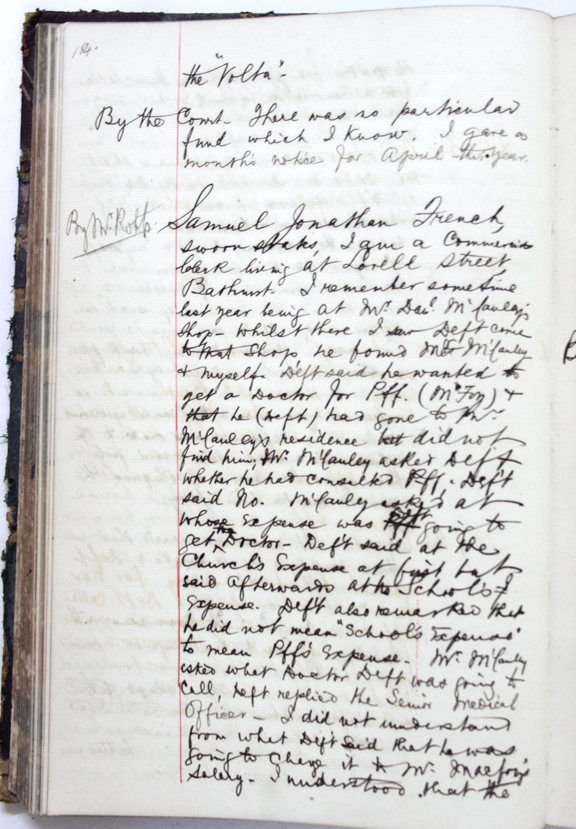 184.
the "Volta".-
By the Court- There was no particular
fund which I know. I gave a
month's notice for April this year.
By Mr. Robbs.
Samuel Jonathan French,
sworn states, I am a Commercial
Clerk living at Lovell Street,
Bathurst. I remember sometime
last year being at Mr. Danl. McCauley's
shop- Whilst there I saw Deft come
to that shop he found Mr McCauley
& myself. Deft said he wanted to
get a Doctor for Pff. (McFoy) &
that he (Deft) had gone to Mr.
McCauley's residence but did not
find him, Mr. McCauley asked Deft
whether he had consulted Pff. Deft
said No. McCauley asked at
whose Expense was Deft going to
get the Doctor- Deft said at the
Church's Expense at first but
said afterwards at the School's
Expense. Deft also remarked that
he did not mean "School's Expense"
to mean Pff's Expense. Mr. McCauley
asked what Doctor Deft was going to
call, Deft replied the Senior Medical
Officer- I did not understand
from what Deft said that he was
going to charge it to Mr.
Salary. I understood that the